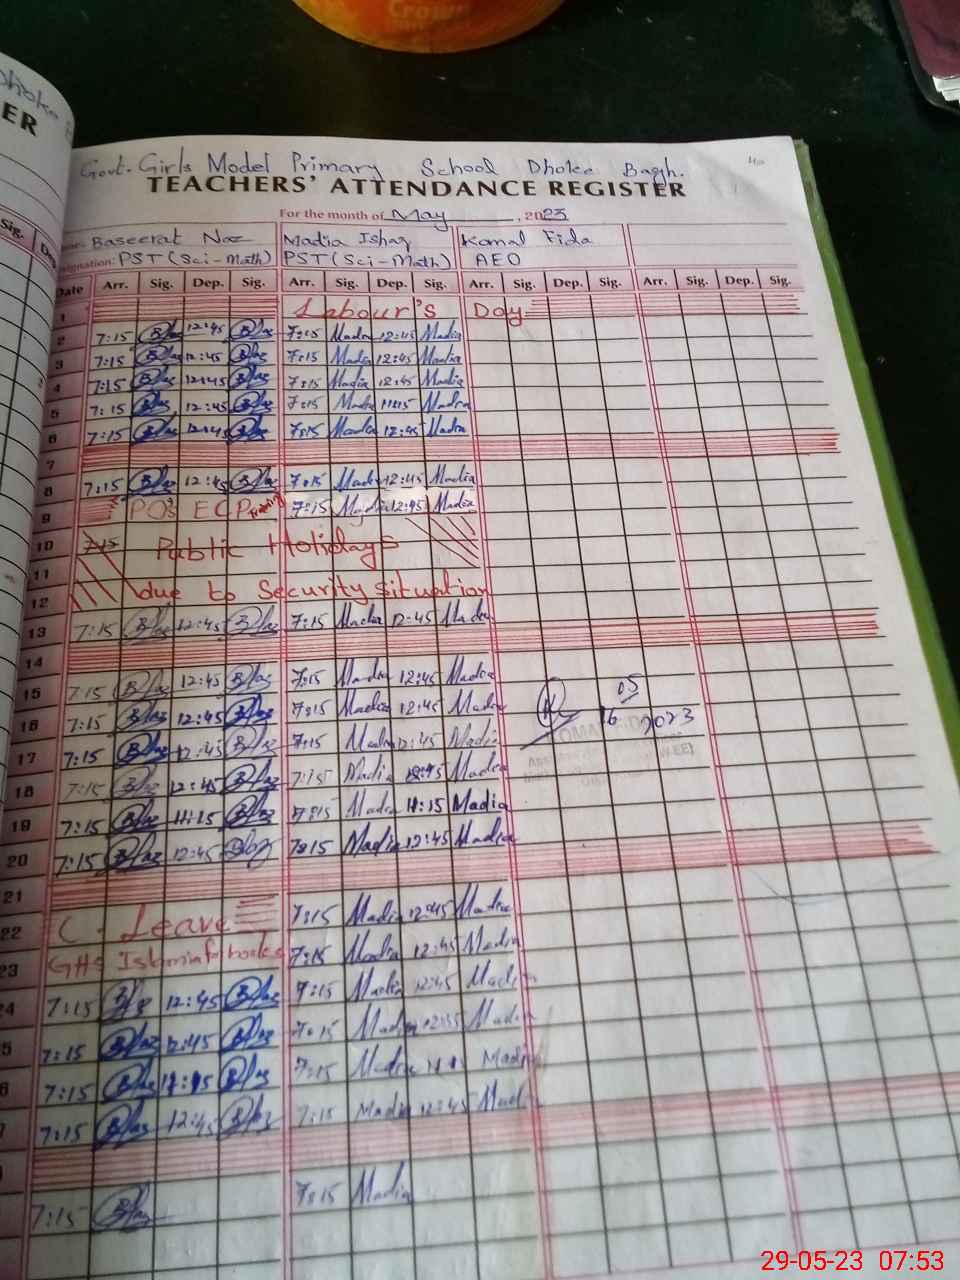 Crown
Dhoke
ER
Govt. Girls Model Primary School Dhoke Bagh.
TEACHERS' ATTENDANCE REGISTER
For the month of May , 2023
Baseerat Naz Madia Ishaq Komal Fida
Designation: PST (Sci-Math) PST (Sci-Math) AEO
Sig. Dep
Date Arr. Sig. Dep. Sig. Arr. Sig. Dep. Sig. Arr. Sig. Dep. Sig. Arr. Sig. Dep. Sig.
1 Labour's Day
2 7:15 12:45 7:15 Madia 12:45 Madia
3 7:15 12:45 7:15 Madia 12:45 Madia
4 7:15 12:45 7:15 Madia 12:45 Madia
5 7:15 12:45 7:15 Madia 11:15 Madia
6 7:15 12:45 7:15 Madia 12:45 Madia
7
8 7:15 12:45 7:15 Madia 12:45 Madia
9 ECP 7:15 Madia 12:45 Madia
10 7:15 Public Holidays
11
12 due to Security situation
13 7:15 12:45 7:15 Madia 12:45 Madia
14
15 7:15 12:45 7:15 Madia 12:45 Madia
16 7:15 12:45 7:15 Madia 12:45 Madia 16 05 2023
17 7:15 12:45 7:15 Madia 12:45 Madia
18 7:15 12:45 7:15 Madia 12:45 Madia
19 7:15 11:15 7:15 Madia 11:15 Madia
20 7:15 12:45 7:15 Madia 12:45 Madia
21
22 C. Leave 7:15 Madia 12:45 Madia
23 GHS Islamia for books 7:15 Madia 12:45 Madia
24 7:15 12:45 7:15 Madia 12:45 Madia
5 7:15 12:45 7:15 Madia Madia
6 7:15 7:15 Madia Madia
7 7:15 12:45 7:15 Madia 12:45 Madia
7:15 7:15 Madia
29-05-23 07:53